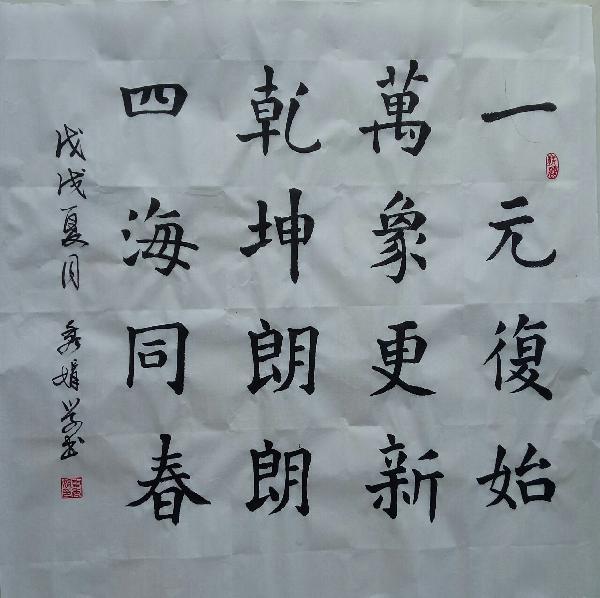 一元復始
萬象更新
乾坤朗朗
四海同春
戊戌夏月 秀娟學書